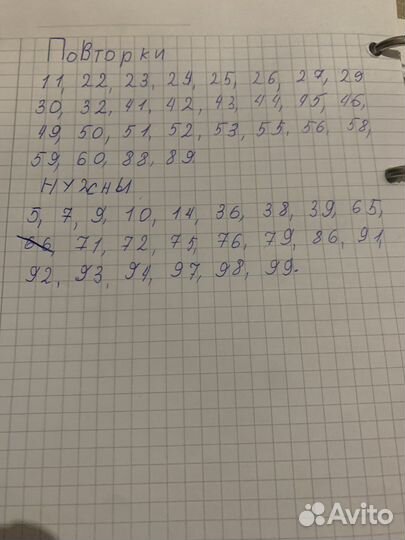 Повторки
11, 22, 23, 24, 25, 26, 27, 29
30, 32, 41, 42, 43, 44, 45, 46,
49, 50, 51, 52, 53, 55, 56, 58,
59, 60, 88, 89.
Нужны
5, 7, 9, 10, 14, 36, 38, 39, 65,
66, 71, 72, 75, 76, 79, 86, 91,
92, 93, 94, 97, 98, 99.
Avito